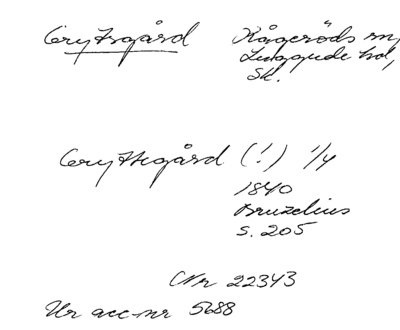 Grytsgård Kågeröds sn,
Luggude hd,
Sk.
Gryttsgård (!) 1/4
1840
Bruzelius
s. 205
Nr 22343
Ur acc-nr 5688